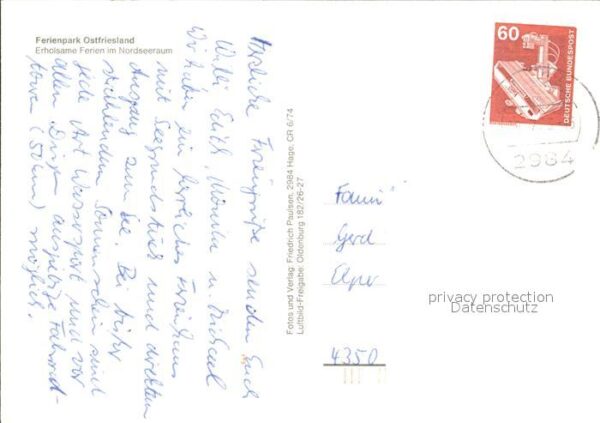 Ferienpark Ostfriesland
Erholsame Ferien im Nordseeraum
Herzliche Feriengrüße senden Euch
Willi, Edith, Monika u. Michael
Wir haben ein herrliches Freihaus
mit Seegrundstück und direktem
Ausgang zum See. Bei bisher
strahlendem Sonnenschein sind
jede Art Wassersport und vor
allen Dingen ausgiebige Fahrrad-
touren (50 km) möglich.
Fotos und Verlag: Friedrich Paulsen, 2984 Hage, CR 6/74
Luftbild-Freigabe: Oldenburg 182/26-27
60
DEUTSCHE BUNDESPOST
2984
Fam.
Gerd
Elper
4350
privacy protection
Datenschutz